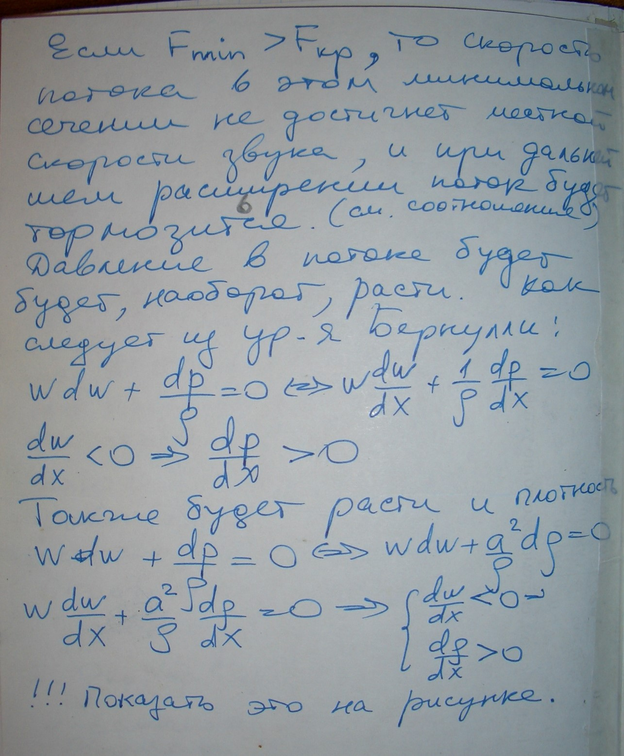 Если Fmin > Fкр, то скорость
потока в этом минимальном
сечении не достигнет местной
скорости звука, и при дальней
шем расширении поток будет
тормозится. (см. соотношение 6)
Давление в потоке будет
будет, наоборот, расти. как
следует из ур-я Бернулли:
w dw + dp/ρ = 0 <=> w dw/dx + 1/ρ dp/dx = 0
dw/dx < 0 => dp/dx > 0
Также будет расти и плотность
w dw + dp/ρ = 0 <=> w dw + a²/ρ dρ = 0
w dw/dx + a²/ρ dρ/dx = 0 => { dw/dx < 0 =>
dρ/dx > 0
!!! Показать это на рисунке.